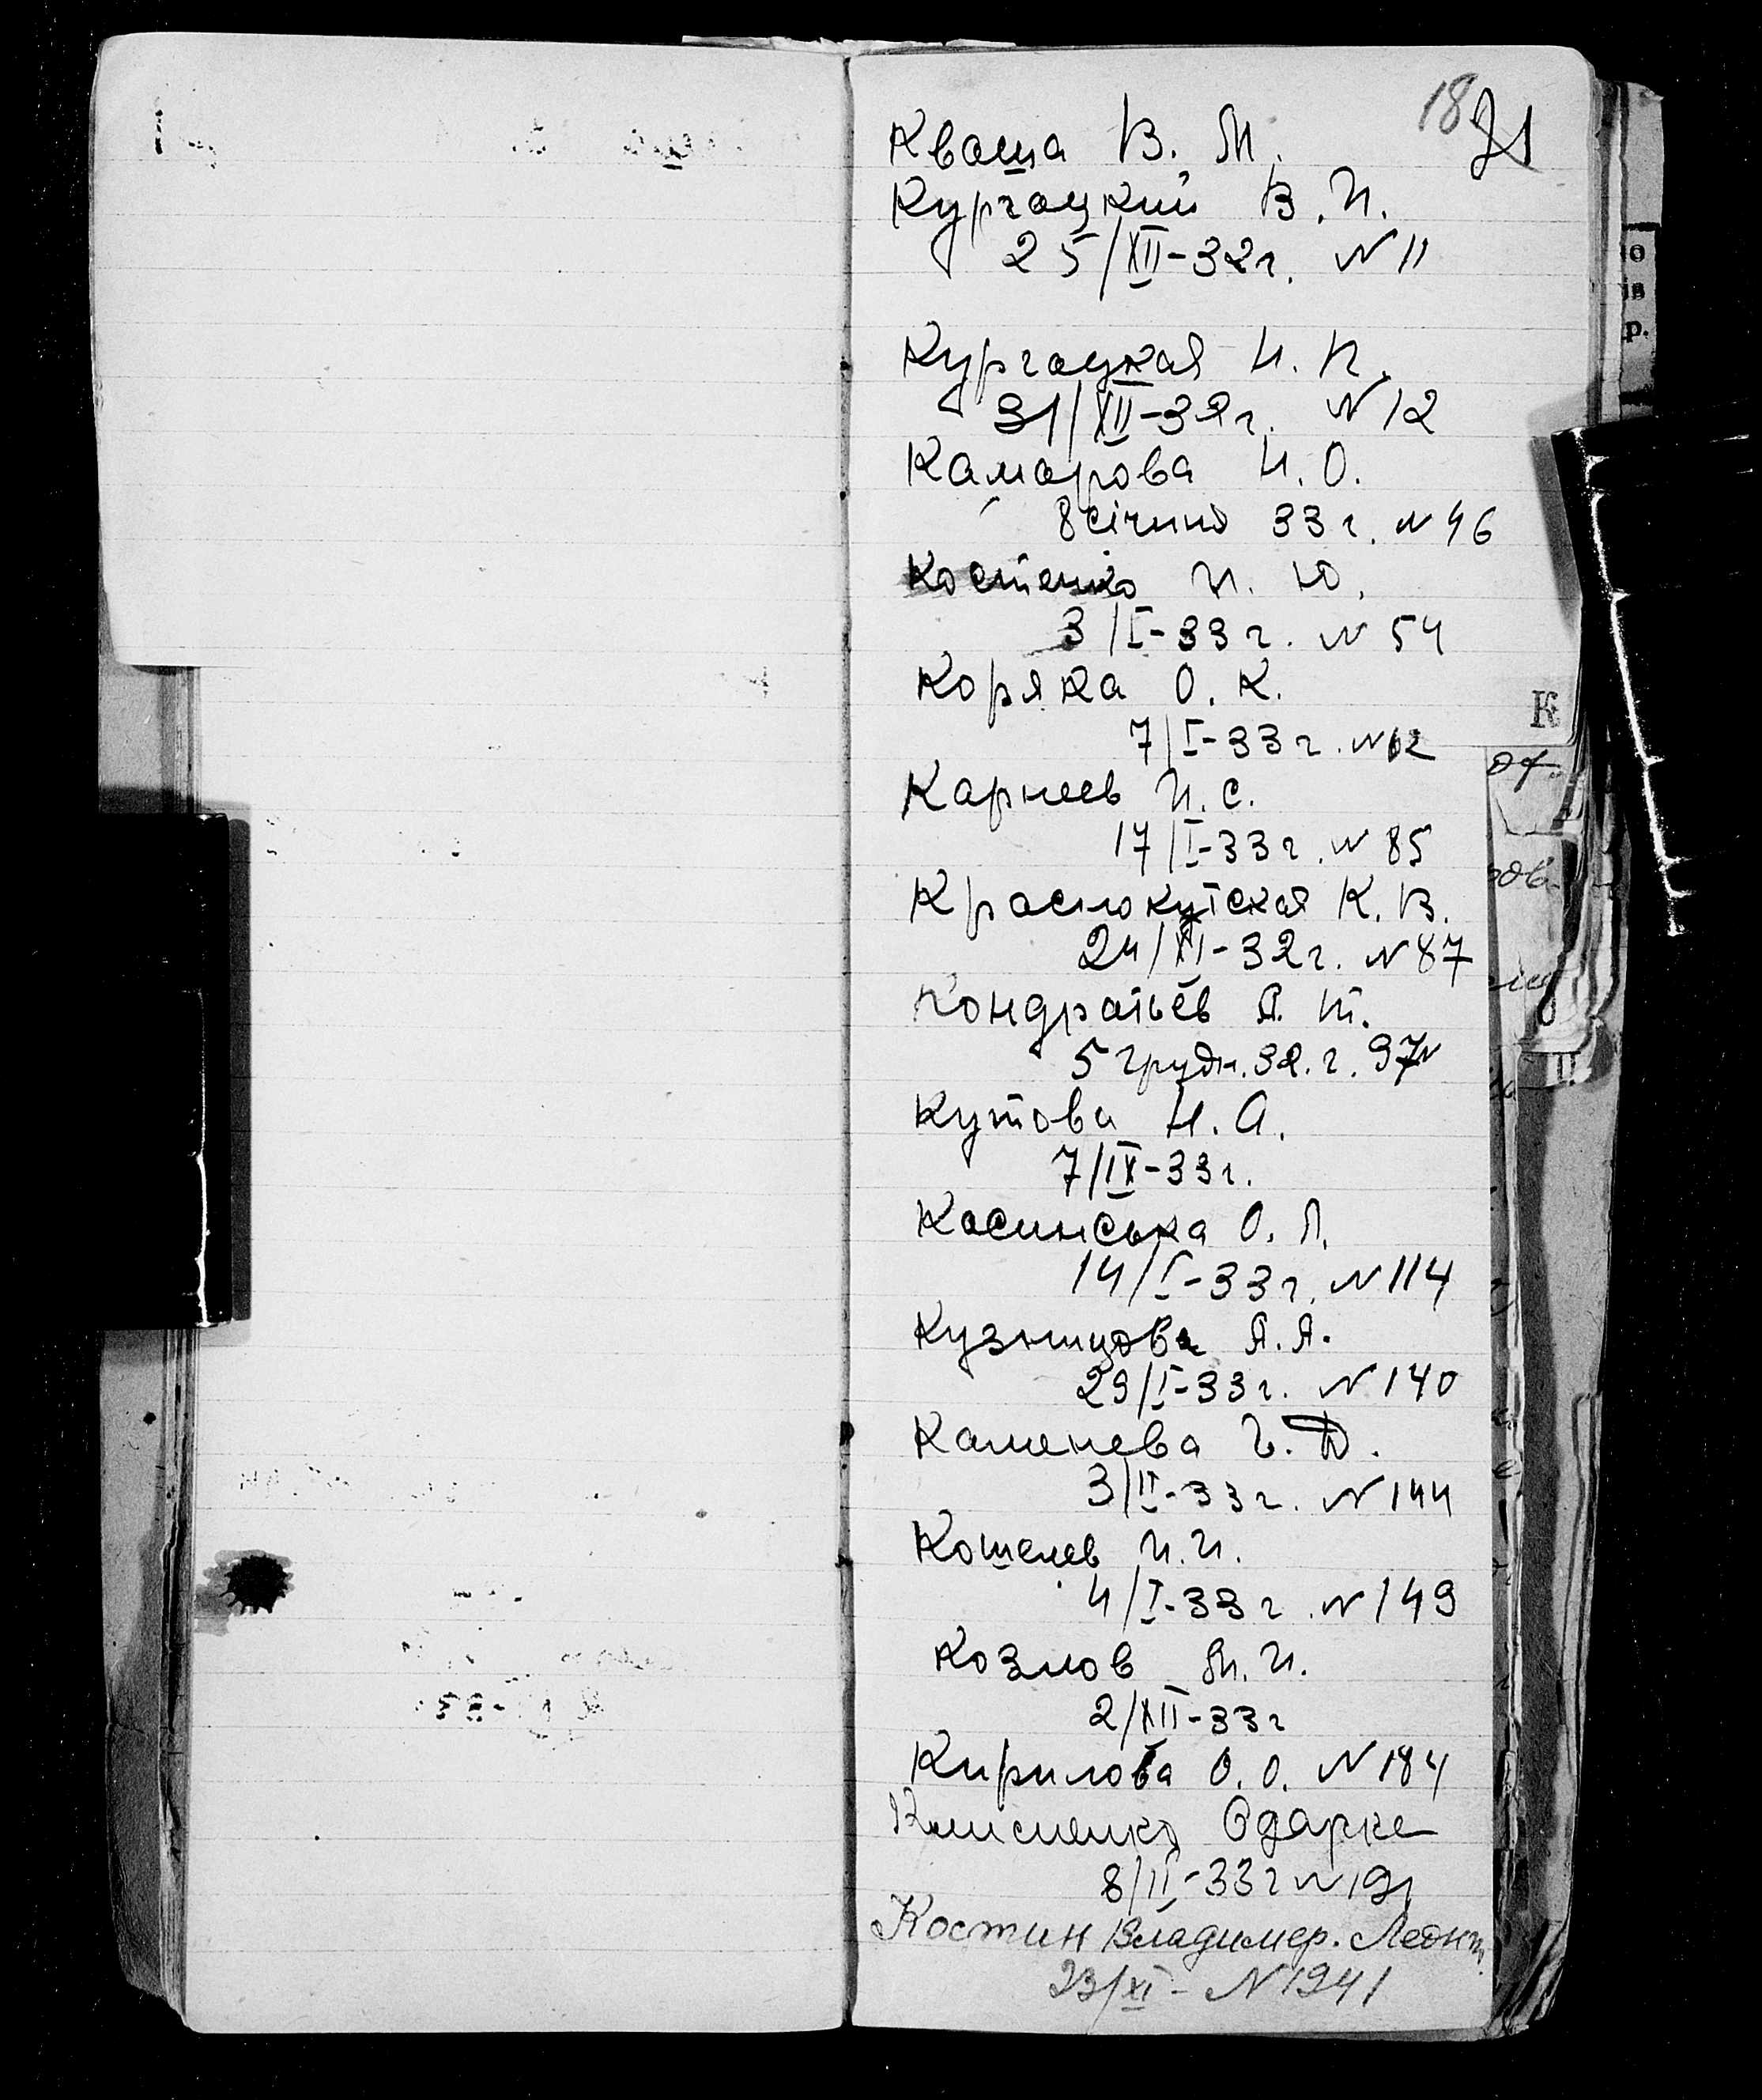 18 21
Кваша В. М.
Кургоцкий В. И.
25/XII-32г. N 11
Кургоцкая Н. П.
31/XII-32г. N 12
Каморова Н. О.
8 січння 33 г. N 46
Костенко И. Ю.
3/I-33 г. N 54
Коряка О. К.
7/I-33 г. N 62
Карнеев И. С.
17/I-33 г. N 85
Краснокутская К. В.
24/XI-32 г. N 87
Кондратьев Я. Т.
5 грудн. 32. г. 97 N
Кутова Н. А.
7/IX-33г.
Косинська О. Л.
14/I-33 г. N 114
Кузнецова А. А.
29/I-33 г. N 140
Каменева Г. Д.
3/II-33 г. N 144
Кошелев И. И.
4/I-33 г. N 149
Козлов М. И.
2/XII-33 г
Кирилова О. О. N 184
Одарке
8/II-33 г N 191
Костин Владимер. Леонт.
23/XI - N 1941
К